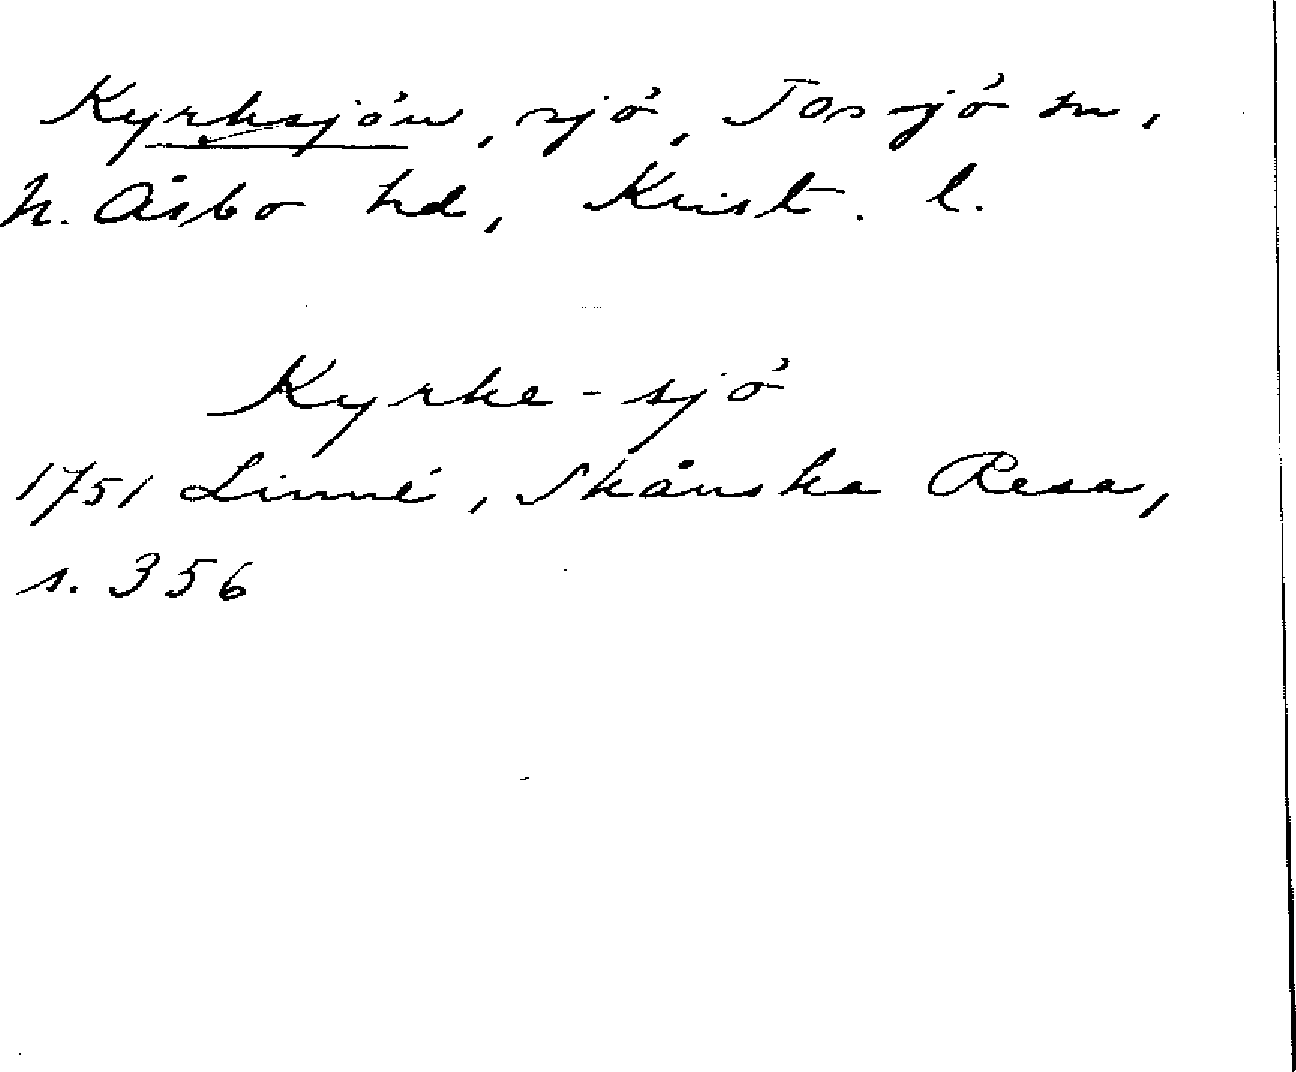 Kyrksjön, sjö, Tossjö sn,
N. Åsbo hd, Krist. l.
Kyrke-sjö
1751 Linné, Skånska Resa,
s. 356